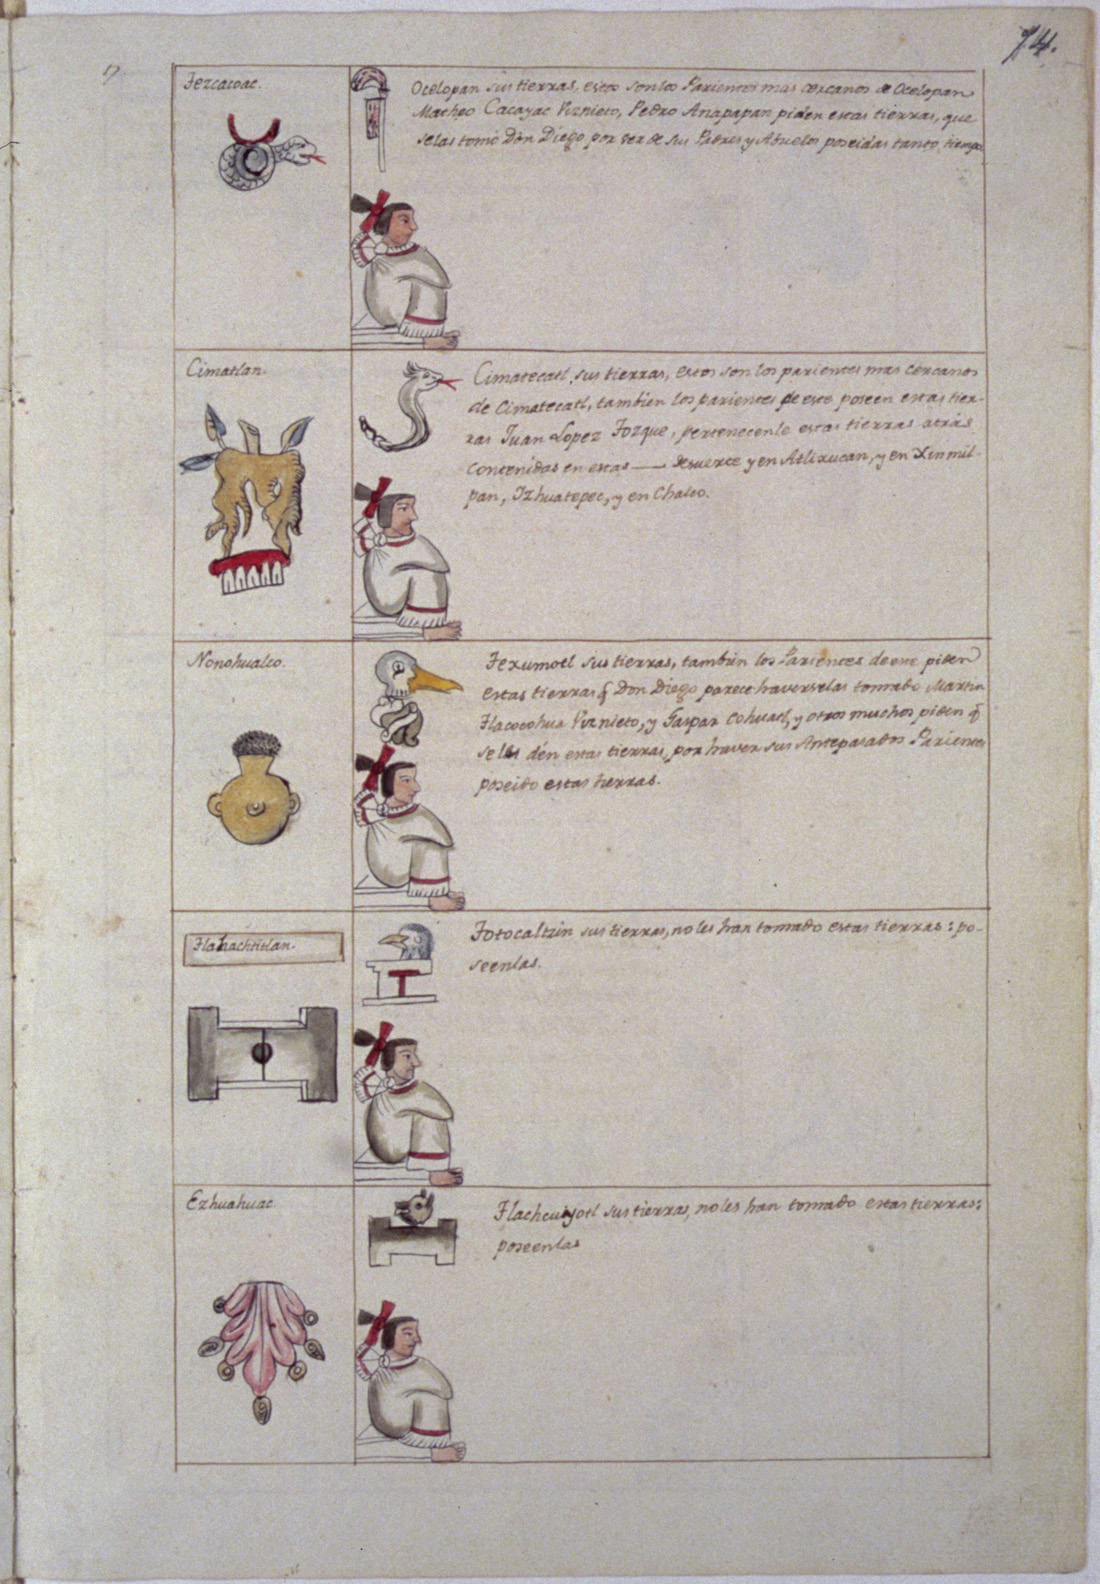 17
74.
Tezcacoac.
Ocelopan sus tierras, estos son los Parientes mas cercanos de Ocelopan
Matheo Cacayac Viznieto, Pedro Anapapan piden estas tierras, que
selas tomó Don Diego por ser de sus Padres y Abuelos poseidas tanto tiempo
Cimatlan.
Cimatecatl sus tierras, estos son los parientes mas cercanos
de Cimatecatl, tambien los parientes de este poseen estas tier-
ras Juan Lopez Tozque, pertenecenle estas tierras atras
contenidas en estas — desuerte y en Atlixucan, y en Xinmil-
pan, Izhuatepec, y en Chalco.
Nonohualco.
Texumotl sus tierras, tambien los Parientes de este piden
estas tierras q̃ Don Diego parece haverselas tomado Martin
Tlacocohua Viznieto, y Gaspar Cohuatl, y otros muchos piden q̃
seles den estas tierras, por haver sus Antepasados Parientes
poseido estas tierras.
Tlahachtitlan.
Totocaltzin sus tierras, no les han tomado estas tierras: po-
seenlas.
Ezhuahuac.
Tlachcuiyotl sus tierras, no les han tomado estas tierras:
poseenlas